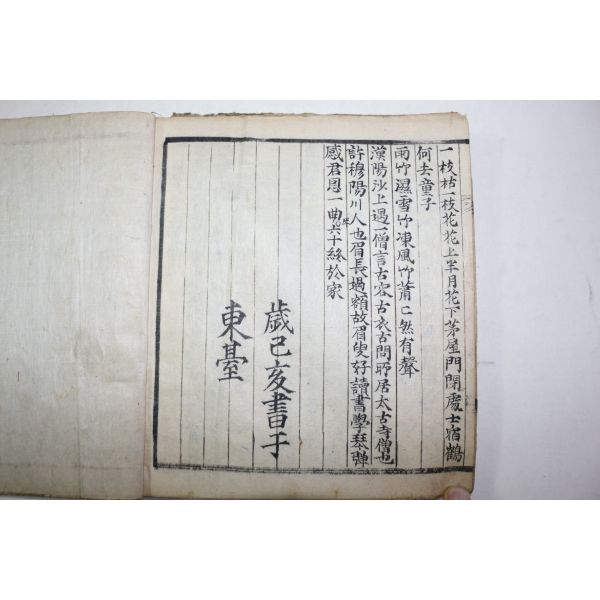 一枝枯一枝花花上半月花下茅屋門閉處士宿鶴
何去童子
雨竹濕雪竹凍風竹蕭〻然有聲
漢陽沙上遇一僧言古容古衣古問所居太古寺僧也
許穆陽川人也眉長過額故眉叟好讀書學琴彈
感君恩一曲年六十終於家
歲己亥書于
東臺